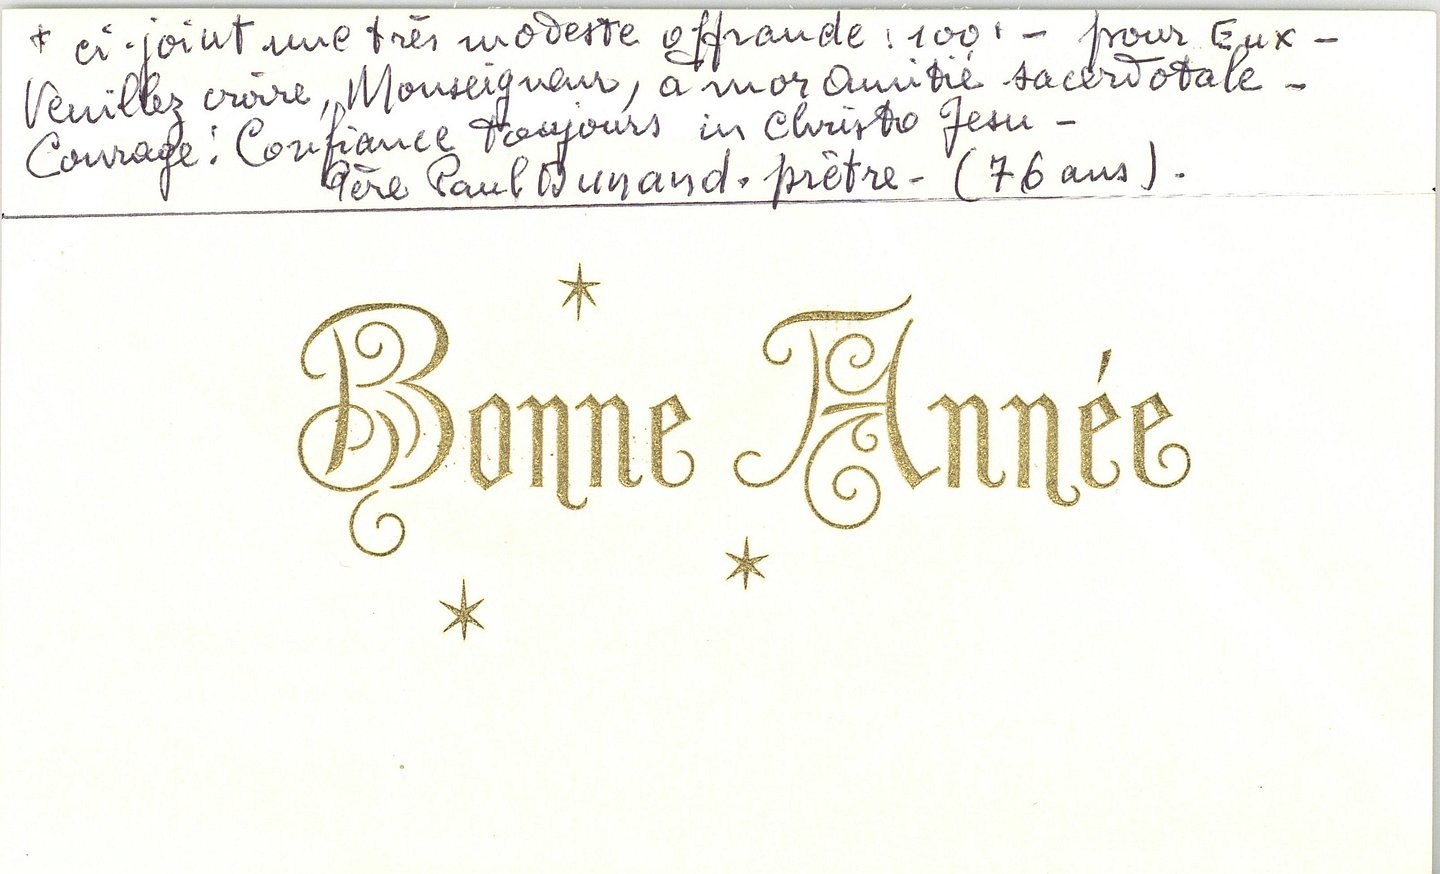 + ci-joint une très modeste offrande : 100' - pour Eux -
Veuillez croire, Monseigneur, à mon amitié sacerdotale -
Courage ! Confiance toujours in Christo Jesu -
Père Paul Dunand. prêtre - (76 ans).
Bonne Année